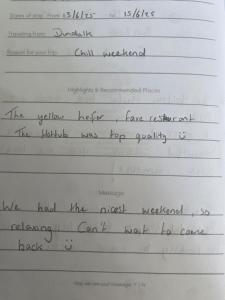 Dates of stay: From 13/6/25 to 15/6/25
Traveling from: Dundalk
Reason for your trip: Chill weekend
Highlights & Recommended Places
The yellow heifer, fave resturant
The Hottub was top quality ☺
Message
We had the nicest weekend, so
relaxing. Can't wait to come
back ☺
May we use your message: Y | N